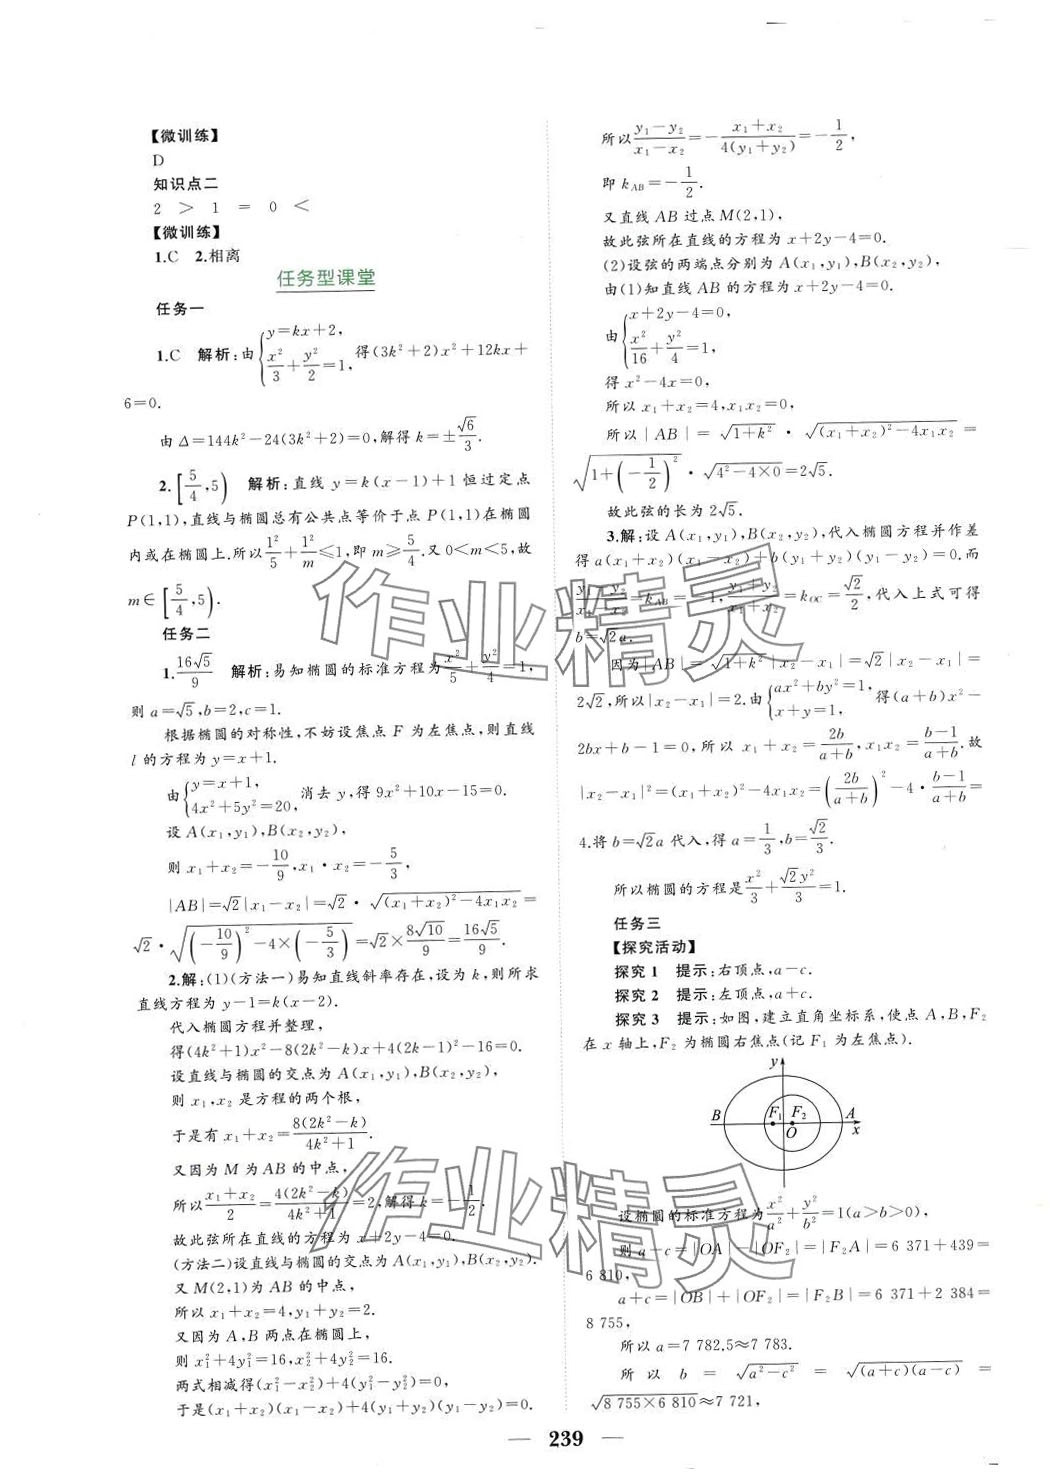 【微训练】
D
知识点二
2 > 1 = 0 <
【微训练】
1.C 2.相离
任务型课堂
任务一
1.C 解析:由{y=kx+2, x²/3+y²/2=1, 得(3k²+2)x²+12kx+
6=0.
由 Δ=144k²-24(3k²+2)=0,解得 k=±√6/3.
2.[5/4,5) 解析:直线 y=k(x-1)+1 恒过定点
P(1,1),直线与椭圆总有公共点等价于点 P(1,1)在椭圆
内或在椭圆上.所以1²/5+1²/m≤1,即 m≥5/4.又 0<m<5,故
m∈[5/4,5).
任务二
1.16√5/9 解析:易知椭圆的标准方程为x²/5+y²/4=1,
则 a=√5,b=2,c=1.
根据椭圆的对称性,不妨设焦点 F 为左焦点,则直线
l 的方程为 y=x+1.
由{y=x+1, 4x²+5y²=20, 消去 y,得 9x²+10x-15=0.
设 A(x₁,y₁),B(x₂,y₂),
则 x₁+x₂=-10/9,x₁·x₂=-5/3,
|AB|=√2|x₁-x₂|=√2·√((x₁+x₂)²-4x₁x₂)=
√2·√((-10/9)²-4×(-5/3))=√2×8√10/9=16√5/9.
2.解:(1)(方法一)易知直线斜率存在,设为 k,则所求
直线方程为 y-1=k(x-2).
代入椭圆方程并整理,
得(4k²+1)x²-8(2k²-k)x+4(2k-1)²-16=0.
设直线与椭圆的交点为 A(x₁,y₁),B(x₂,y₂),
则 x₁,x₂ 是方程的两个根,
于是有 x₁+x₂=8(2k²-k)/(4k²+1).
又因为 M 为 AB 的中点,
所以(x₁+x₂)/2=4(2k²-k)/(4k²+1)=2,解得 k=-1/2.
故此弦所在直线的方程为 x+2y-4=0.
(方法二)设直线与椭圆的交点为 A(x₁,y₁),B(x₂,y₂).
又 M(2,1)为 AB 的中点,
所以 x₁+x₂=4,y₁+y₂=2.
又因为 A,B 两点在椭圆上,
则 x₁²+4y₁²=16,x₂²+4y₂²=16.
两式相减得(x₁²-x₂²)+4(y₁²-y₂²)=0,
于是(x₁+x₂)(x₁-x₂)+4(y₁+y₂)(y₁-y₂)=0.
所以(y₁-y₂)/(x₁-x₂)=-(x₁+x₂)/(4(y₁+y₂))=-1/2,
即 k_AB=-1/2.
又直线 AB 过点 M(2,1),
故此弦所在直线的方程为 x+2y-4=0.
(2)设弦的两端点分别为 A(x₁,y₁),B(x₂,y₂),
由(1)知直线 AB 的方程为 x+2y-4=0.
由{x+2y-4=0, x²/16+y²/4=1,
得 x²-4x=0,
所以 x₁+x₂=4,x₁x₂=0,
所以|AB|=√(1+k²)·√((x₁+x₂)²-4x₁x₂)=
√(1+(-1/2)²)·√(4²-4×0)=2√5.
故此弦的长为 2√5.
3.解:设 A(x₁,y₁),B(x₂,y₂),代入椭圆方程并作差
得 a(x₁+x₂)(x₁-x₂)+b(y₁+y₂)(y₁-y₂)=0.而
(y₁-y₂)/(x₁-x₂)=k_AB=-1,(y₁+y₂)/(x₁+x₂)=k_OC=√2/2,代入上式可得
b=√2a.
因为|AB|=√(1+k²)|x₂-x₁|=√2|x₂-x₁|=
2√2,所以|x₂-x₁|=2.由{ax²+by²=1, x+y=1, 得(a+b)x²-
2bx+b-1=0,所以 x₁+x₂=2b/(a+b),x₁x₂=(b-1)/(a+b).故
|x₂-x₁|²=(x₁+x₂)²-4x₁x₂=(2b/(a+b))²-4·(b-1)/(a+b)=
4.将 b=√2a 代入,得 a=1/3,b=√2/3.
所以椭圆的方程是x²/3+√2y²/3=1.
任务三
【探究活动】
探究 1 提示:右顶点,a-c.
探究 2 提示:左顶点,a+c.
探究 3 提示:如图,建立直角坐标系,使点 A,B,F₂
在 x 轴上,F₂ 为椭圆右焦点(记 F₁ 为左焦点).
y
B F₁ F₂ A
O x
设椭圆的标准方程为x²/a²+y²/b²=1(a>b>0),
则 a-c=|OA|-|OF₂|=|F₂A|=6 371+439=
6 810,
a+c=|OB|+|OF₂|=|F₂B|=6 371+2 384=
8 755,
所以 a=7 782.5≈7 783.
所以 b=√(a²-c²)=√((a+c)(a-c))=
√(8 755×6 810)≈7 721,
— 239 —
作业精灵
作业精灵